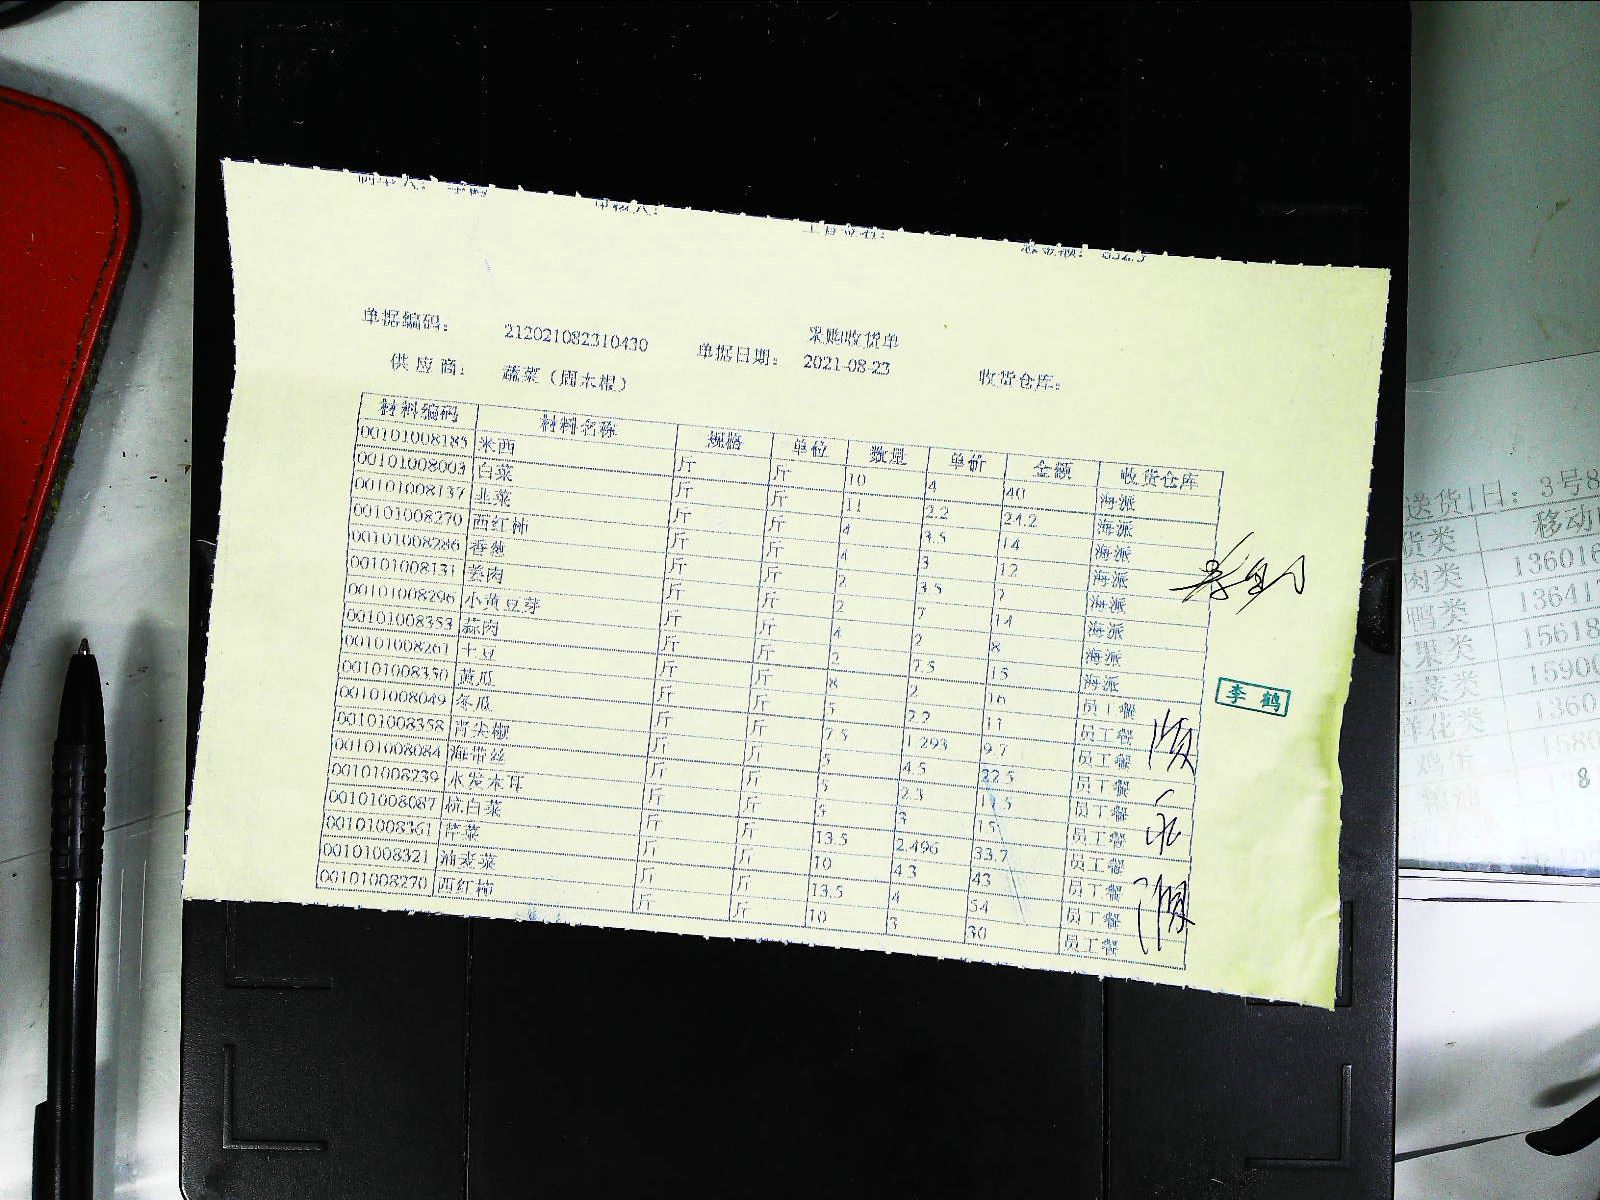 单据编码： 212021082310430 采购收货单
单据日期： 2021-08-23 收货仓库：
供应商： 蔬菜（周木根）
材料编码 材料名称 规格 单位 数量 单价 金额 收货仓库
00101008185 米西 斤 斤 10 4 40 海派
00101008003 白菜 斤 斤 11 2.2 24.2 海派
00101008137 韭菜 斤 斤 4 3.5 14 海派
00101008270 西红柿 斤 斤 4 3 12 海派
00101008286 香葱 斤 斤 2 3.5 7 海派
00101008131 姜肉 斤 斤 2 7 14 海派
00101008296 小黄豆芽 斤 斤 4 2 8 海派
00101008353 蒜肉 斤 斤 2 7.5 15 海派
00101008261 土豆 斤 斤 8 2 16 员工餐
00101008350 黄瓜 斤 斤 5 2.2 11 员工餐
00101008049 冬瓜 斤 斤 7.5 1.293 9.7 员工餐
00101008358 青尖椒 斤 斤 5 4.5 22.5 员工餐
00101008084 海带丝 斤 斤 5 2.3 11.5 员工餐
00101008239 水发木耳 斤 斤 5 3 15 员工餐
00101008087 杭白菜 斤 斤 13.5 2.496 33.7 员工餐
00101008361 斤 斤 10 4.3 43 员工餐
00101008321 油麦菜 斤 斤 13.5 4 54 员工餐
00101008270 西红柿 斤 斤 10 3 30 员工餐
李鹤
送货1日：3号8
货类 移动
肉类 13601
鸭类 1364
果类 15618
菜类 15900
鲜花类 1360
鸡蛋 1580
8